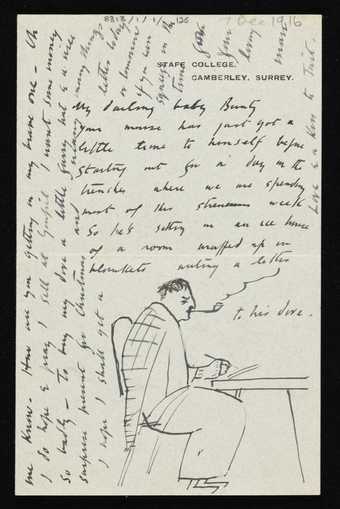 8313/1/1/126
7 Dec 1916
STAFF COLLEGE,
CAMBERLEY, SURREY.
My darling baby Bunty
Your mouse has just got a
little time to himself before
starting out for a day in the
trenches where we are spending
most of this strenuous week
So he's sitting in an ice house
of a room wrapped up in
blankets writing a letter
to his dove.
me know – How are you getting on my brave one – Oh
I do hope & pray I sell at I want some money
So badly – To buy my dove a little furry hat & a nice
surprise present for Christmas and many things
I hope I shall get a
letter today
or tomorrow
if you can
squeeze in the
time
Your
loving
mouse
Love & a kiss to